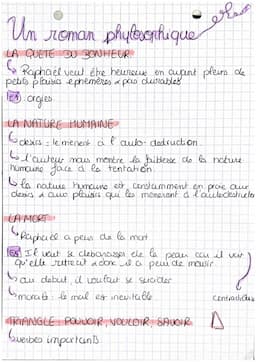 Un roman phylosophique
LA QUETE DU BONHEUR
↳ Raphaël veut être heureux en ayant pleins de
petits plaisirs ephémères ≠ pas durables
ex : orgies
LA NATURE HUMAINE
↳ désirs : le mènent à l'auto-destruction.
↳ l'auteur nous montre la faiblesse de la nature
humaine face à la tentation.
↳ la nature humaine est constamment en proie aux
désirs & aux plaisirs qui les mèneront à l'autodestruction
LA MORT
↳ Raphaël a peur de la mort
ex Il veut se débarasser de la peau car il voit
qu'elle retrecit & donc il a peur de mourir.
↳ au début, il voulait se suicider
↳ morale : le mal est inévitable.
contradictions
TRIANGLE POUVOIR VOULOIR SAVOIR
↳ verbes importants